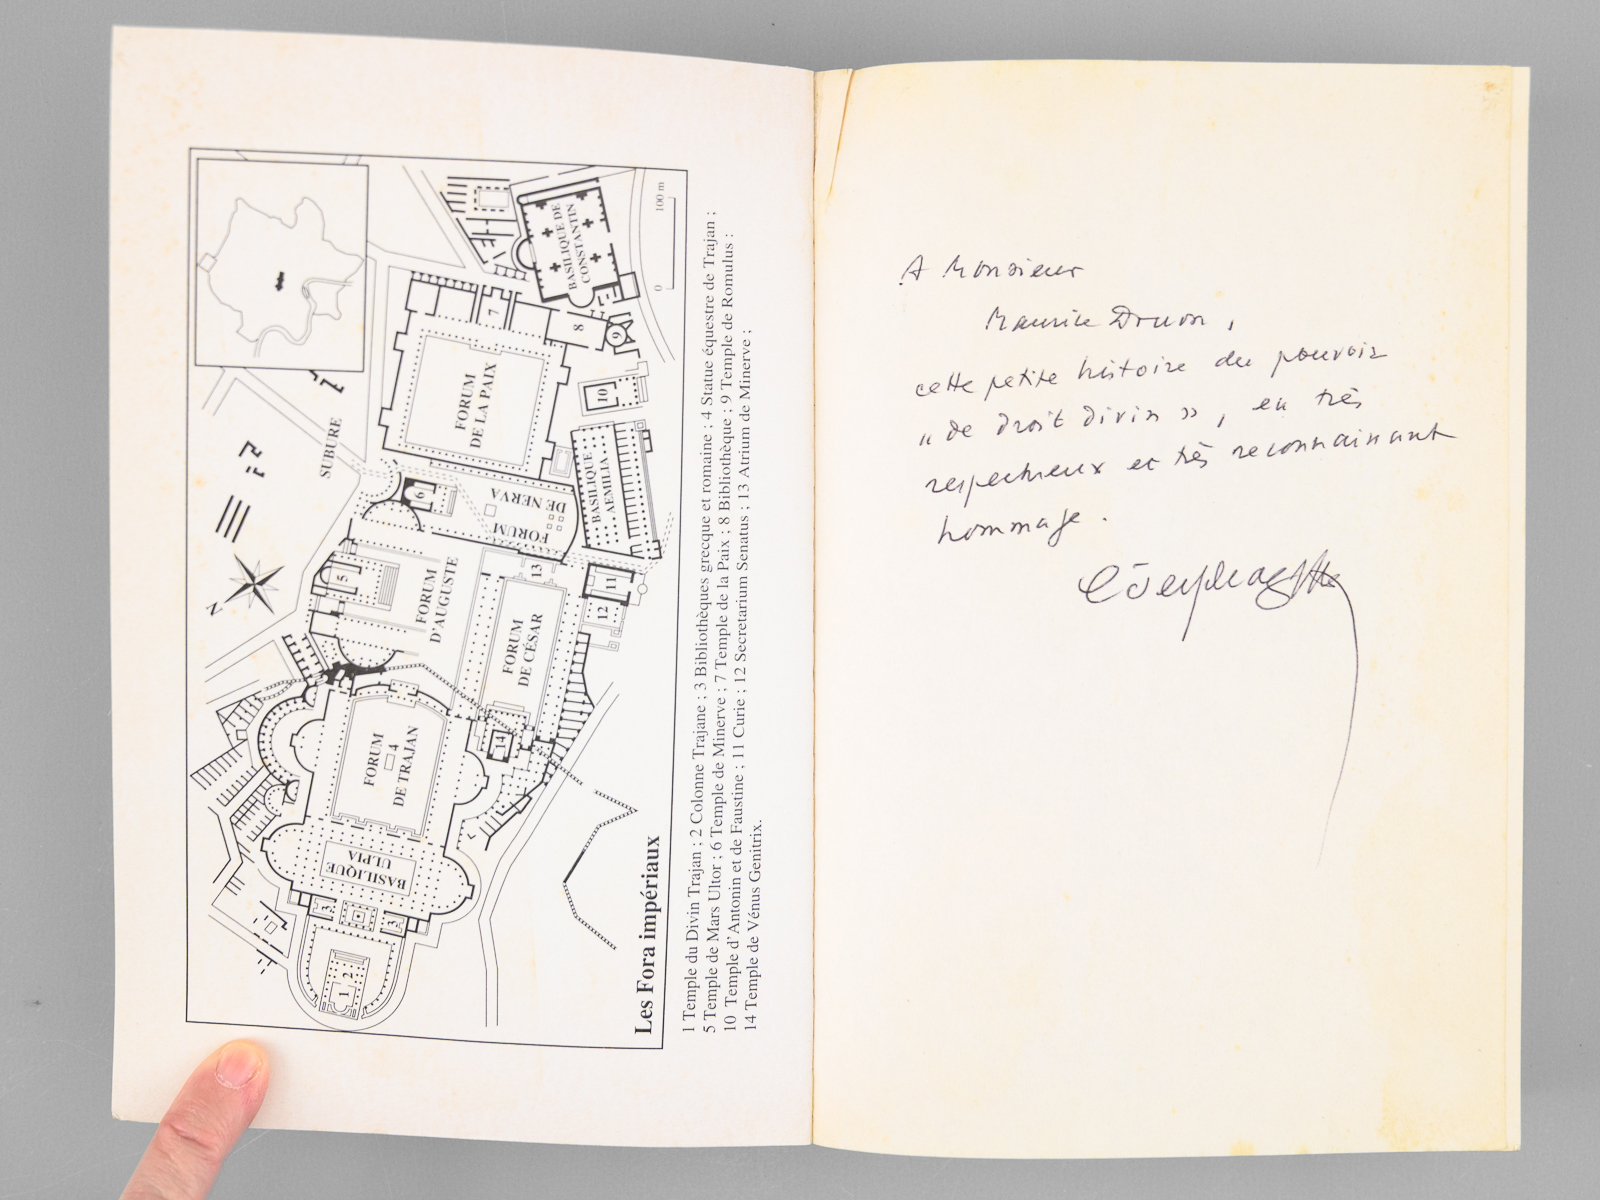 SUBURE
N
BASILIQUE DE
CONSTANTIN
0 100 m
FORUM
DE LA PAIX
7
8
9
10
BASILIQUE
AEMILIA
FORUM
DE NERVA
6
5
FORUM
D'AUGUSTE
13
11
12
FORUM
DE CÉSAR
14
FORUM
4
DE TRAJAN
BASILIQUE
ULPIA
3
3
2
1
Les Fora impériaux
1 Temple du Divin Trajan ; 2 Colonne Trajane ; 3 Bibliothèques grecque et romaine ; 4 Statue équestre de Trajan ;
5 Temple de Mars Ultor ; 6 Temple de Minerve ; 7 Temple de la Paix ; 8 Bibliothèque ; 9 Temple de Romulus ;
10 Temple d'Antonin et de Faustine ; 11 Curie ; 12 Secretarium Senatus ; 13 Atrium de Minerve ;
14 Temple de Vénus Genitrix.
A Monsieur
Maurice Druon,
cette petite histoire du pouvoir
« de droit divin », en très
respectueux et très reconnaissant
hommage.